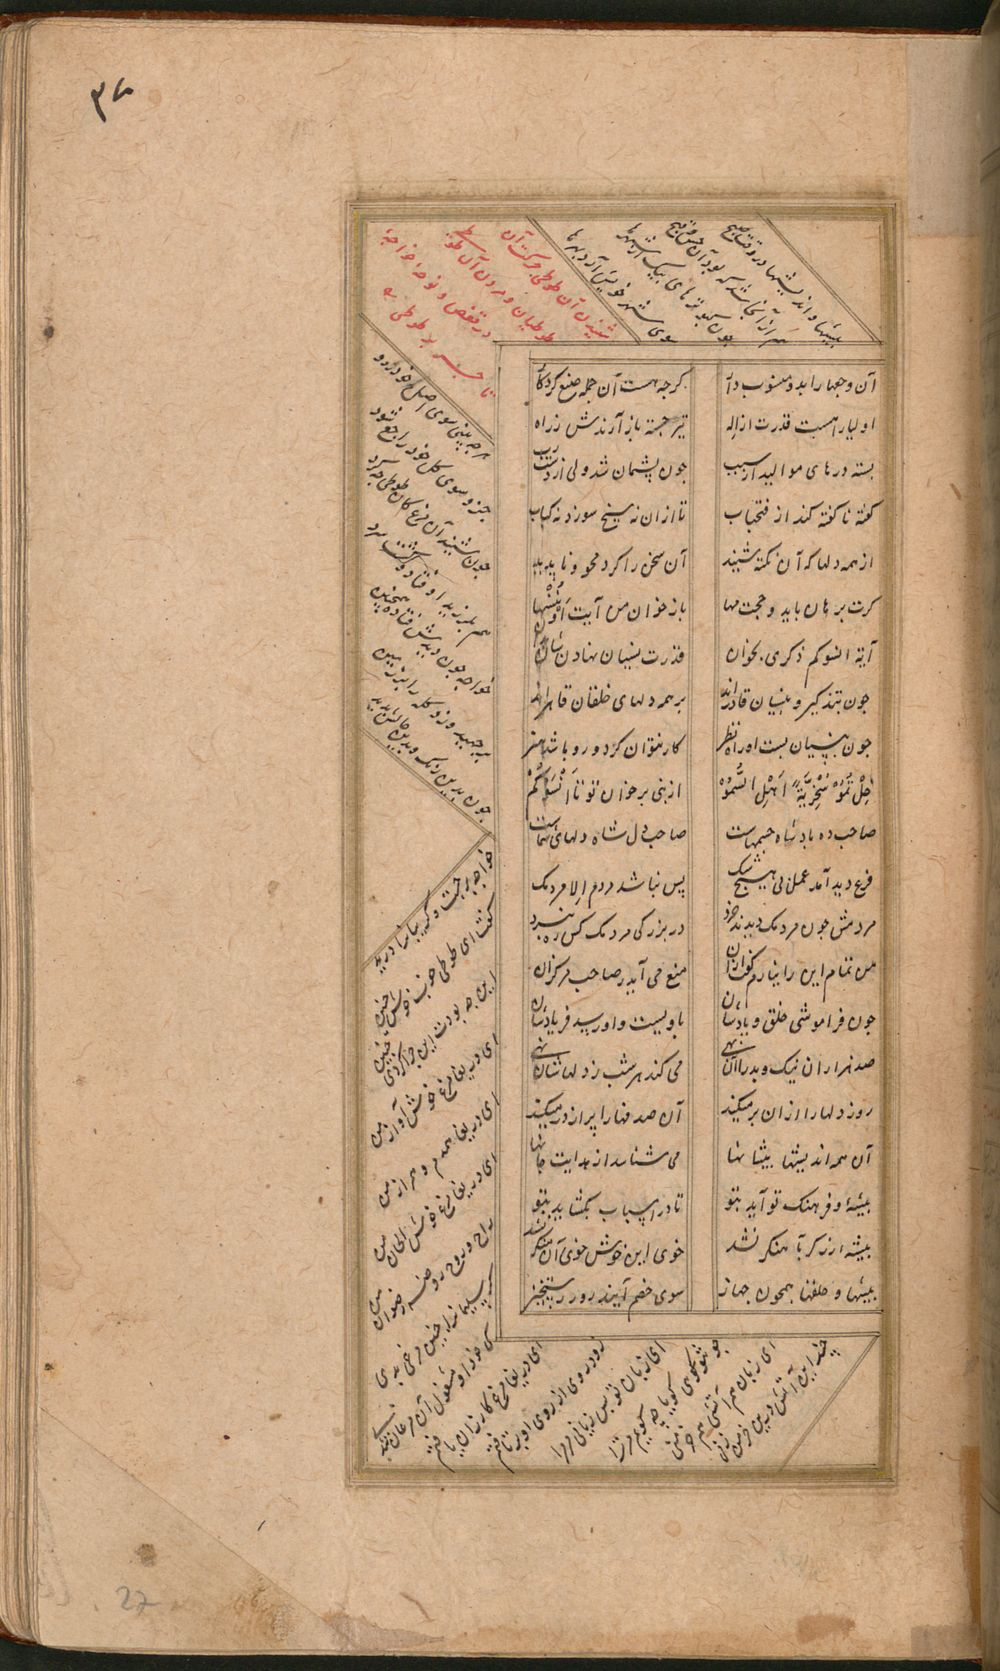 ۳۷
آن وجهها را بدو منسوب دار
گرچه هست آن جمله صنع کردگار
اولیا را هست قدرت از اله
تیر جسته باز آرندش ز راه
بسته درهای موالید از سبب
چون پشیمان شد ولی از دست رب
گفته ناگفته کند از فتح باب
تا از ان نه سیخ سوزد نه کباب
از همه دلها که آن نکته شنید
آن سخن را کرد محو و ناپدید
گرت برهان باید و حجت مها
باز خوان من آیت او ننسها
آیة انسوکم ذکری بخوان
قدرت نسیان نهادن شان بدان
چون بتذکیر و بنسیان قادرند
بر همه دلهای خلقان قاهرند
چون بنسیان بست او راه نظر
کار نتوان کرد ور باشد هنر
خلتموا سخریة اهل السمو
از نبی برخوان تو تا انسوکم
صاحب ده بادشاه جسمهاست
صاحب دل شاه دلهای شماست
فرع دید آمد عمل بی هیچ شک
پس نباشد مردم الا مردمک
مردمش چون مردمک دیدند خرد
در بزرگی مردمک کس ره نبرد
من تمام این را نیارم گفت از ان
منع می آید ز صاحب مرکزان
چون فراموشی خلق و یادشان
با ویست و او رسد فریادشان
صد هزاران نیک و بد را آن بهی
می کند هر شب ز دلهاشان تهی
روز دلها را از ان پر میکند
آن صدفها را پر از در میکند
آن همه اندیشها پیشانها
می شناسد از هدایت جانها
پیشه و فرهنگ تو آید بتو
تا در اسباب بگشاید بتو
پیشه زرگر بآهنگر نشد
خوی این خوش خوی آن منکر نشد
پیشها و خلقها همچون جهاز
سوی خصم آیند روز رستخیز
پیشها و اندیشها در وقت صبح
هم از آنجا شد که بود آن حسن و قبح
چون کبوترهای پیک از شهرها
سوی شهر خویش آرد بهرها
شنیدن آن طوطی حرکت آن
طوطیان و مردن آن طوطی
در قفص و نوحهٔ خواجهٔ
تاجر بر طوطی
هرچه بینی سوی اصل خود رود
جزو سوی کل خود راجع شود
چون شنید آن مرغ کان طوطی چه کرد
هم بلرزید اوفتاد و گشت سرد
خواجه چون دیدش فتاده همچنین
برجهید و زد کله را بر زمین
چون بدین رنگ و بدین حالش بدید
خواجه برجست و گریبان را درید
گفت ای طوطی خوب خوش حنین
این چه بودت این چرا گشتی چنین
ای دریغا مرغ خوش آواز من
ای دریغا همدم و همراز من
ای دریغا مرغ خوش الحان من
راح روح و روضه رضوان من
گر سلیمان را چنین مرغی بدی
کی خود او مشغول آن مرغان شدی
ای دریغا مرغ کارزان یافتم
زود روی از روی او بر تافتم
ای زبان تو بس زیانی مر مرا
چون توی گویا چه گویم مر ترا
ای زبان هم آتشی هم خرمنی
چند این آتش درین خرمن زنی
27